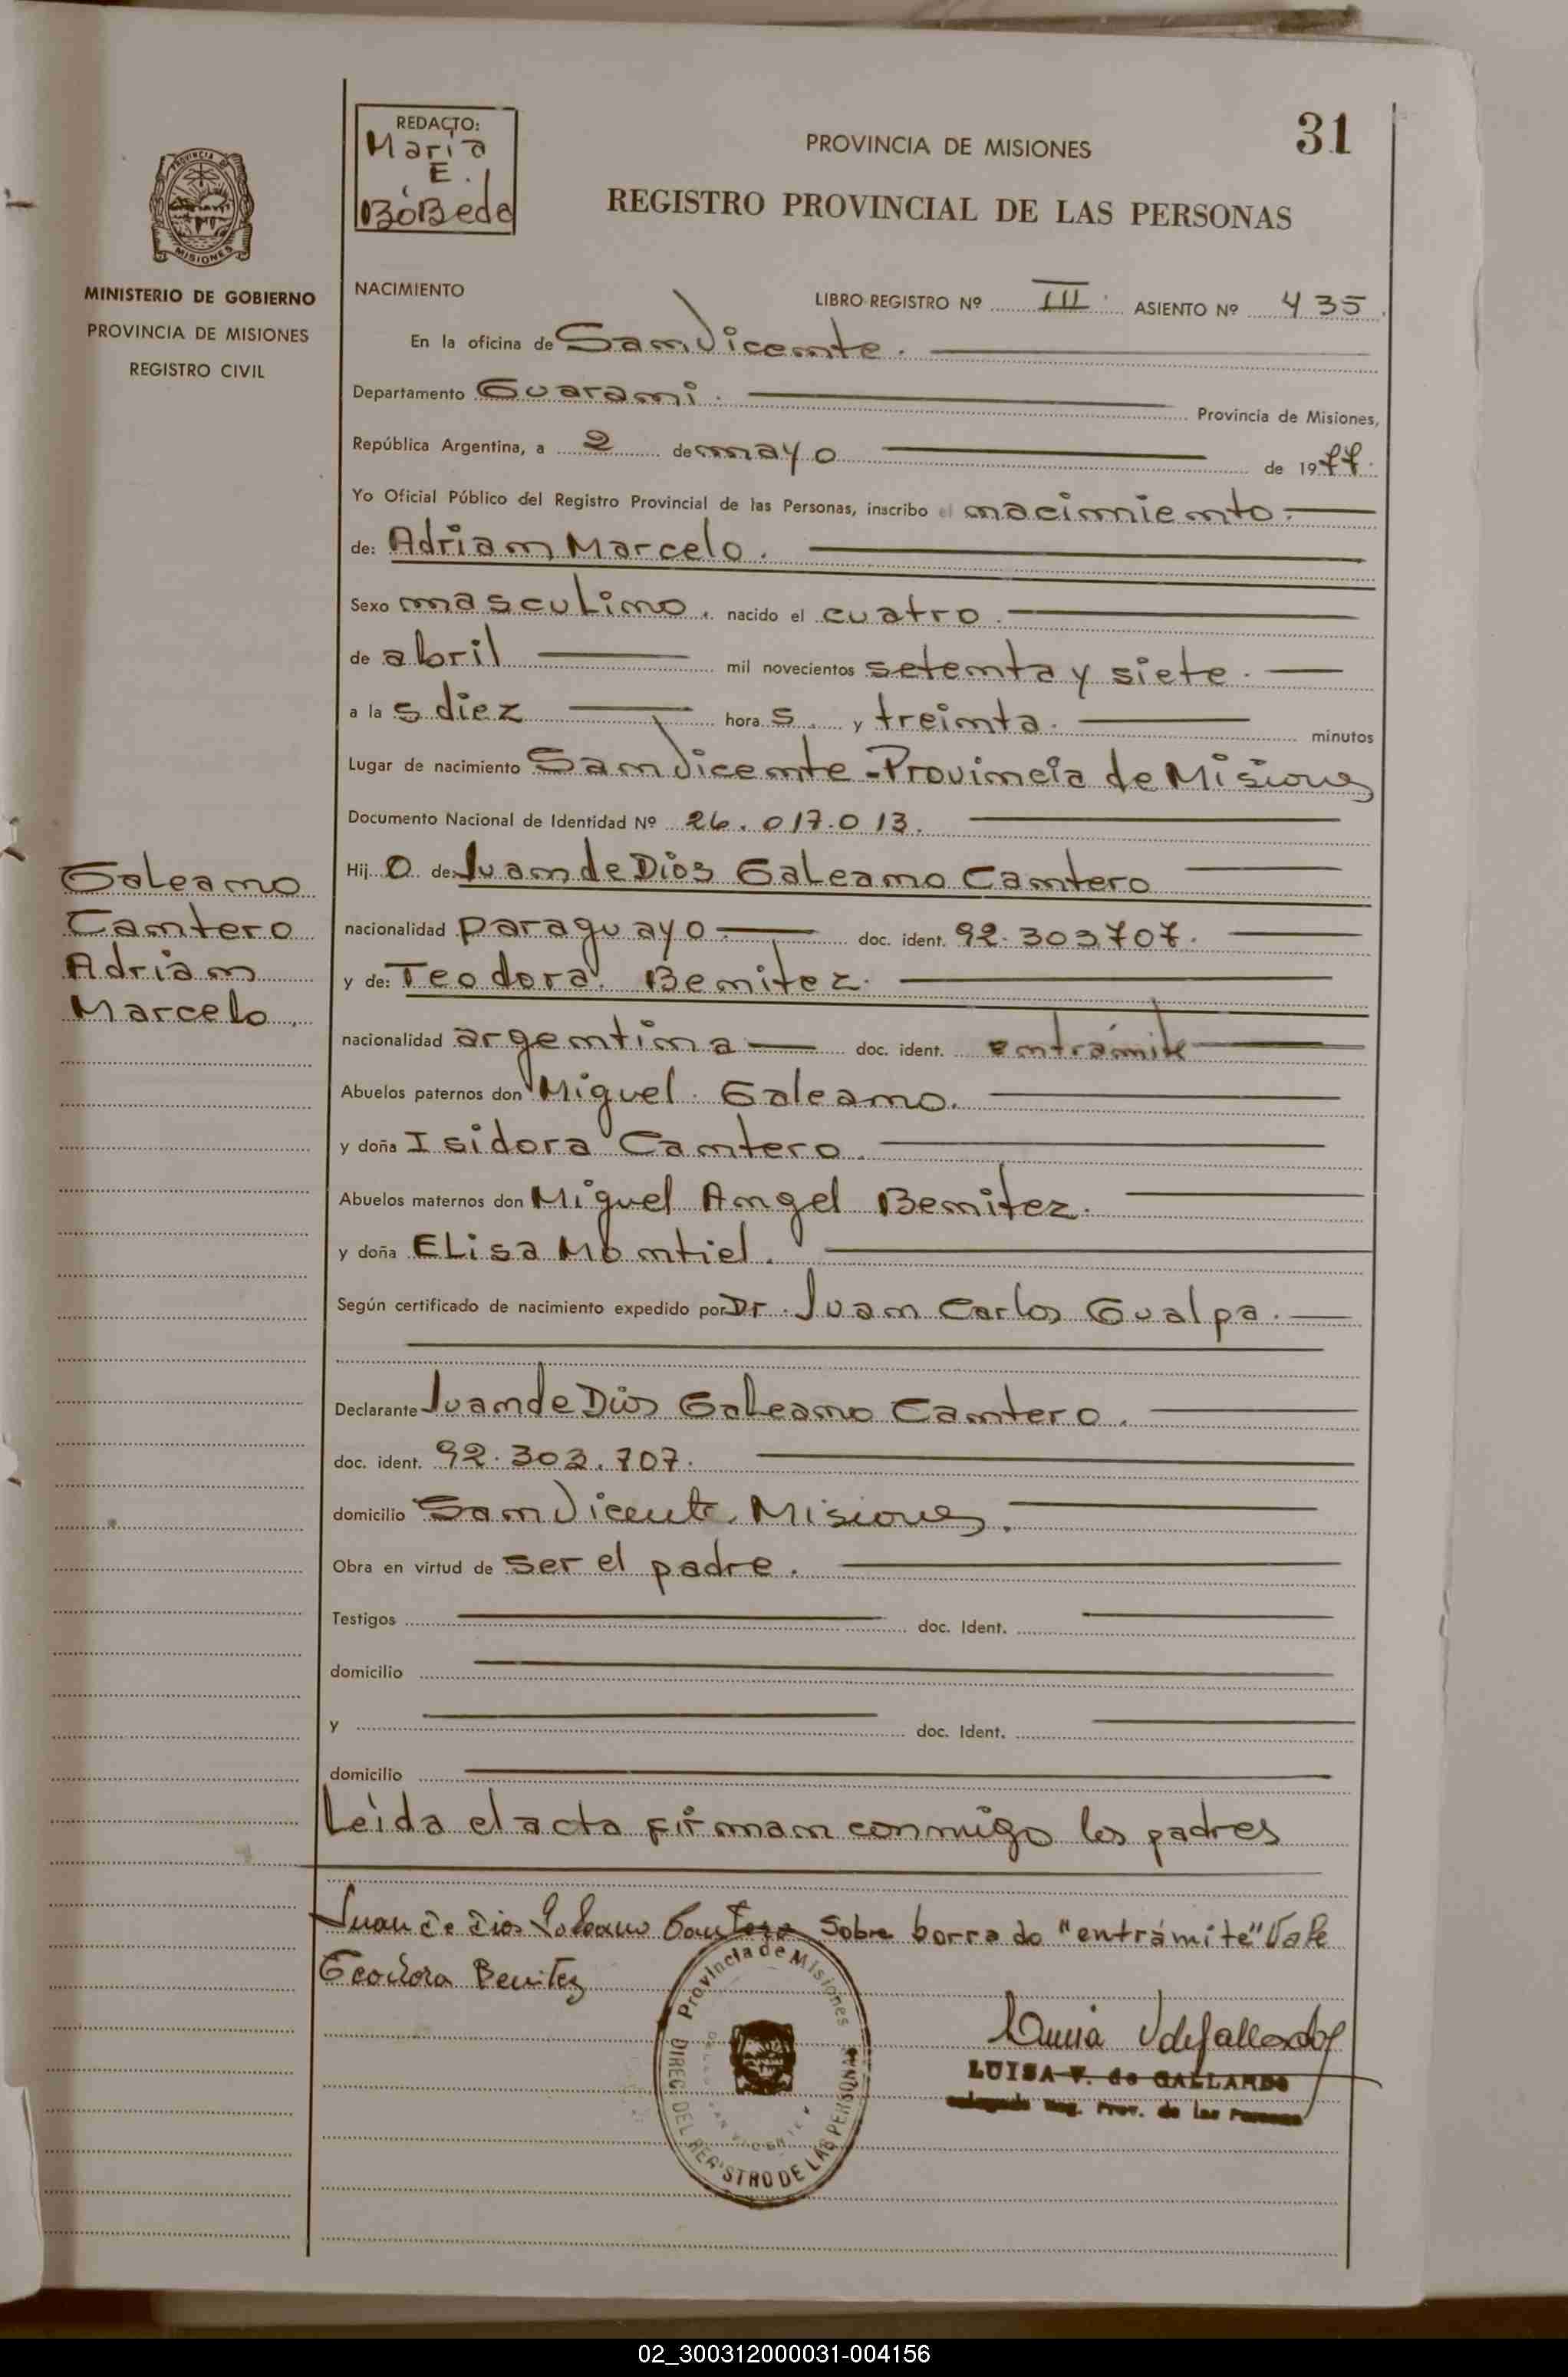 REDACTO:
María
E.
BóBeda
PROVINCIA DE MISIONES
31
REGISTRO PROVINCIAL DE LAS PERSONAS
PROVINCIA DE
MISIONES
MINISTERIO DE GOBIERNO
PROVINCIA DE MISIONES
REGISTRO CIVIL
NACIMIENTO
LIBRO REGISTRO Nº III. ASIENTO Nº 435.
En la oficina de San Vicente.
Departamento Guarani. Provincia de Misiones,
República Argentina, a 2 de mayo de 1977.
Yo Oficial Público del Registro Provincial de las Personas, inscribo el nacimiento.
de: Adrian Marcelo.
Sexo masculino. nacido el cuatro.
de abril mil novecientos setenta y siete.
a la s diez hora s. y treinta. minutos
Lugar de nacimiento San Vicente - Provincia de Misiones
Documento Nacional de Identidad Nº 26.017.013.
Hij o de: Juan de Dios Galeano Cantero
nacionalidad paraguayo. doc. ident. 92.303707.
y de: Teodora. Benitez.
nacionalidad argentina doc. ident. entrámite
Abuelos paternos don Miguel. Galeano.
y doña Isidora Cantero.
Abuelos maternos don Miguel Angel Benitez.
y doña ELisa Montiel.
Según certificado de nacimiento expedido por Dr. Juan Carlos Gualpa.
Declarante Juan de Dios Galeano Cantero.
doc. ident. 92.303.707.
domicilio San Vicente, Misiones.
Obra en virtud de ser el padre.
Testigos doc. Ident.
domicilio
y doc. Ident.
domicilio
Leída el acta firman conmigo los padres
Juan de Dios Galeano Cantero Sobre borrado "entrámite" Vale
Teodora Benitez
Galeano
Cantero
Adrian
Marcelo.
Provincia de Misiones
DIREC. DEL REGISTRO DE LAS PERSONAS
LUISA V. de GALLARDO
Reg. Prov. de las Personas
02_300312000031-004156